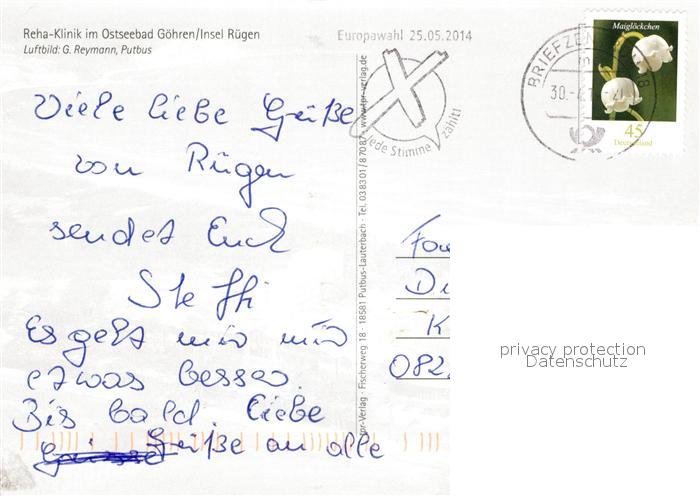 Reha-Klinik im Ostseebad Göhren/Insel Rügen
Luftbild: G. Reymann, Putbus
Europawahl 25.05.2014
Jede Stimme zählt!
BRIEFZEN
30.-
Maiglöckchen
45
Deutschland
Viele liebe Grüße
von Rügen
sendet Euch
Steffi
Es geht mir
etwas besser.
Bis bald. Liebe
Grüße an alle
pr-Verlag · Fischerweg 18 · 18581 Putbus-Lauterbach · Tel. 038301/87087 · www.tpr-verlag.de
Fa
D
K
082
privacy protection
Datenschutz